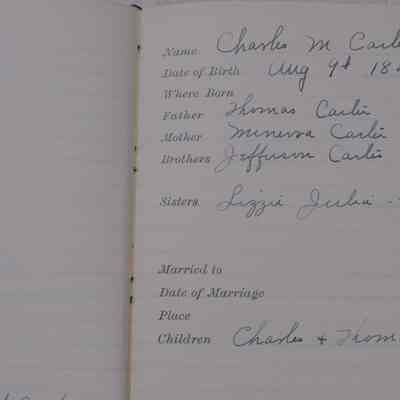 Name Charles M Carte
Date of Birth Aug 9th 18
Where Born
Father Thomas Carter
Mother Minerva Carter
Brothers Jefferson Carter
Sisters Lizzie Julia -
Married to
Date of Marriage
Place
Children Charles + Thom